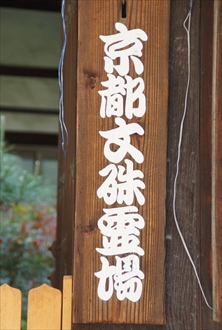 京都文殊霊場